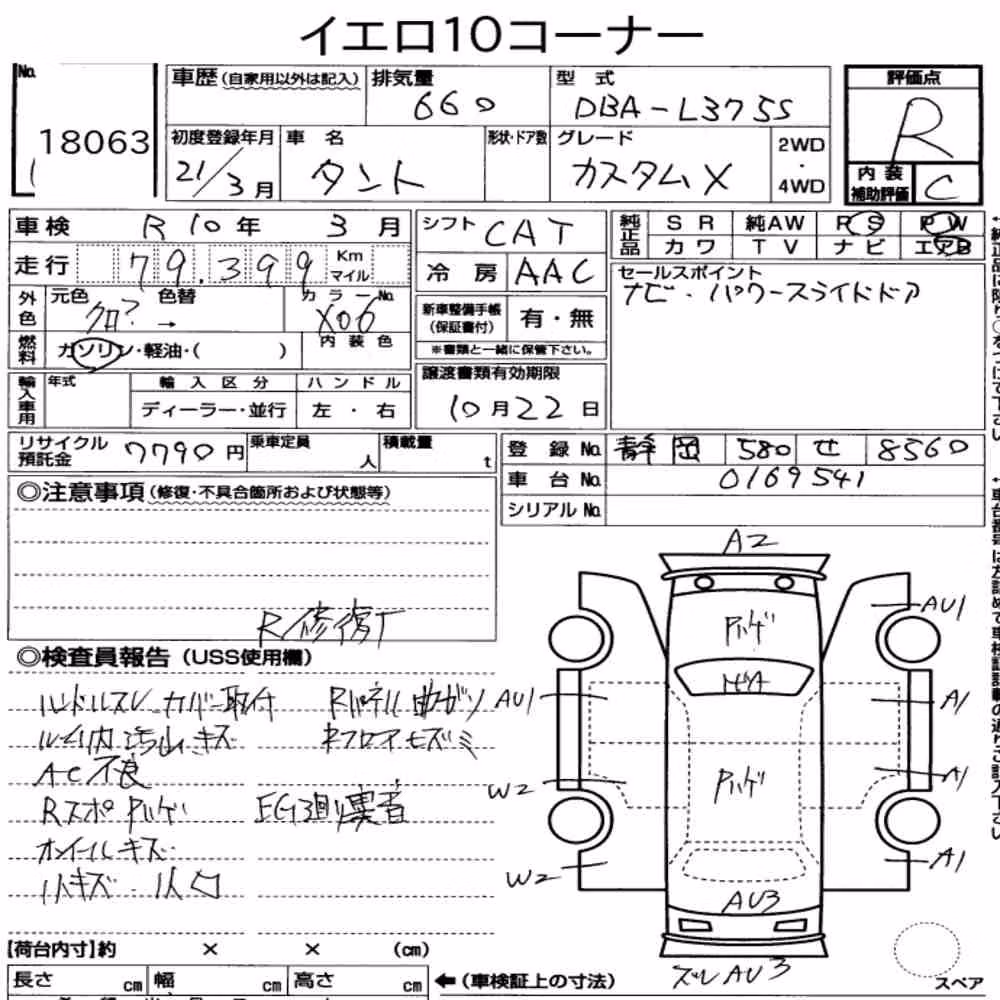 イエロ10コーナー
No. 18063
車歴 (自家用以外は記入) 排気量 660 型式 DBA-L375S
初度登録年月 21/3月 車名 タント 形状・ドア数 グレード カスタムX 2WD・4WD
評価点 R
内装補助評価 C
車検 R10年 3月
走行 79,399 Km マイル
外色 元色 クロ? 色替 → カラーNo. X06
燃料 ガソリン・軽油・( ) 内装色
輸入車用 年式 輸入区分 ハンドル
ディーラー・並行 左・右
シフト CAT
冷房 AAC
新車整備手帳(保証書付) 有・無
※書類と一緒に保管下さい。
譲渡書類有効期限
10月22日
純正品 SR 純AW PS PW
カワ TV ナビ エアB
セールスポイント
ナビ・パワースライドドア
リサイクル預託金 7790円 乗車定員 人 積載量 t
登録No. 静岡 580 セ 8560
車台No. 0169541
シリアルNo.
◎注意事項 (修復・不具合箇所および状態等)
R/修復
◎検査員報告 (USS使用欄)
ハンドルスレ カバー取付 Rパネル曲ガリ
キズ Rフロア
AC不良
Rスポ Pハゲ EG廻り異音
ホイールキズ
キズ
A2
Pハゲ
AU1
AU1
A1
Pハゲ
A1
W2
W2
A1
AU3
ズレ AU3
スペア
【荷台内寸】約 × × (cm)
長さ cm 幅 cm 高さ cm ←(車検証上の寸法)